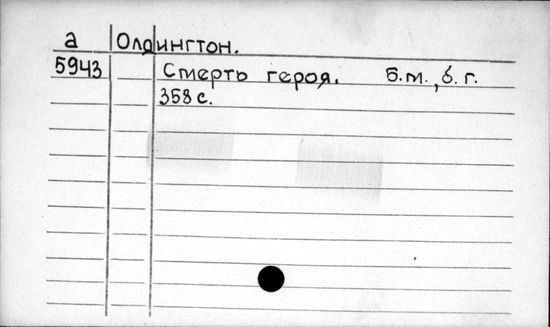 а Олдингтон.
5943 Смерть героя. Б.м., б.г.
358 с.